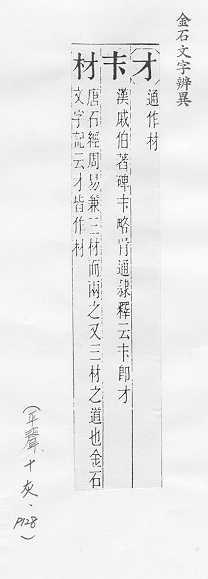 金石文字辨異
才
卞
材
通作材
漢戚伯著碑卞略通隸釋云卞即才
唐石經周易兼三材而兩之又三材之道也金石
文字記云才皆作材
(平聲十灰.P128)